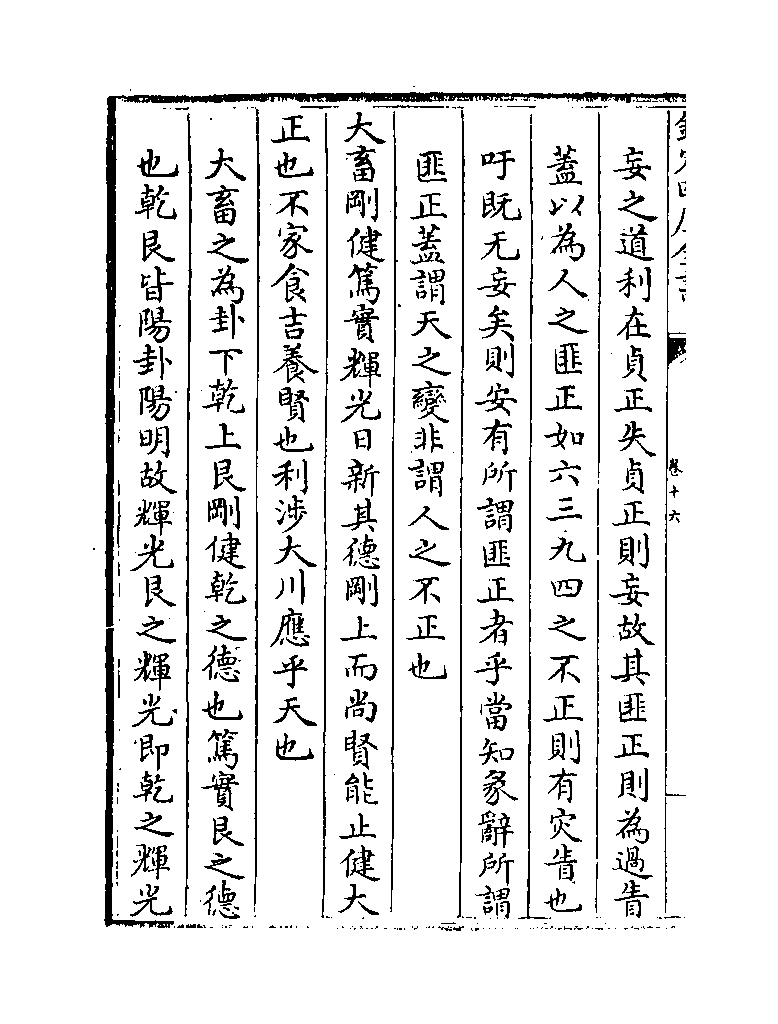 欽定四庫全書
卷十六
妄之道利在貞正失貞正則妄故其匪正則為過眚
蓋以為人之匪正如六三九四之不正則有災眚也
吁既无妄矣則安有所謂匪正者乎當知彖辭所謂
匪正蓋謂天之變非謂人之不正也
大畜剛健篤實輝光日新其德剛上而尚賢能止健大
正也不家食吉養賢也利涉大川應乎天也
大畜之為卦下乾上艮剛健乾之德也篤實艮之德
也乾艮皆陽卦陽明故輝光艮之輝光即乾之輝光